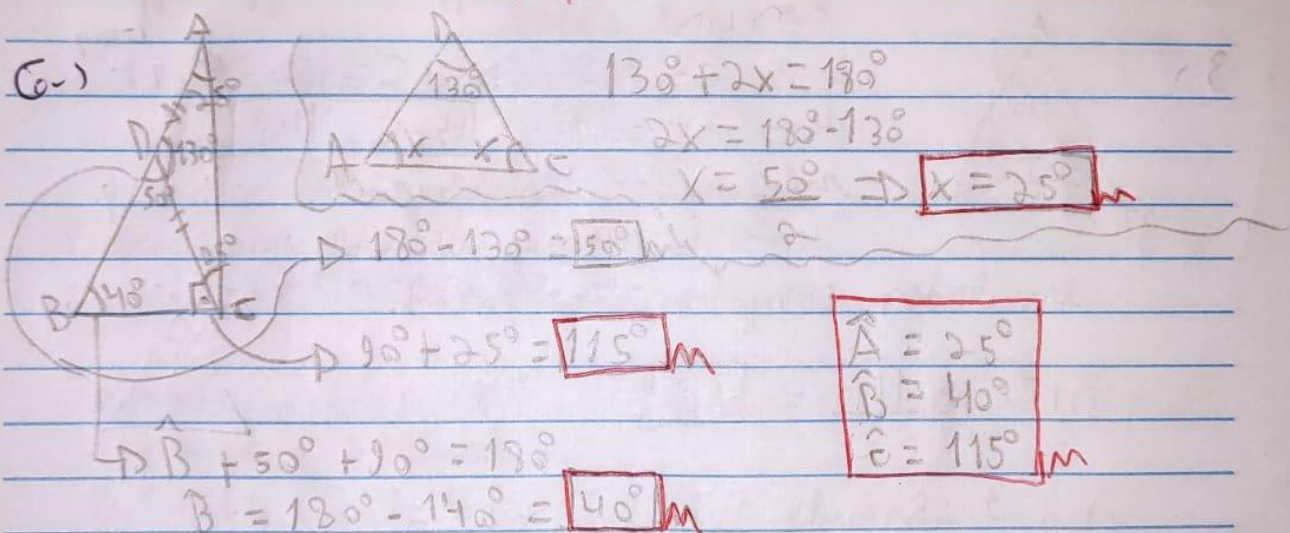 6-)
A
25°
D
130°
50°
25°
B 40° C
D
130°
A x x C
130° + 2x = 180°
2x = 180° - 130°
x = 50° ⇒ x = 25°
2
180° - 130° = 50°
90° + 25° = 115°
B̂ + 50° + 90° = 180°
B = 180° - 140° = 40°
Â = 25°
B̂ = 40°
Ĉ = 115°